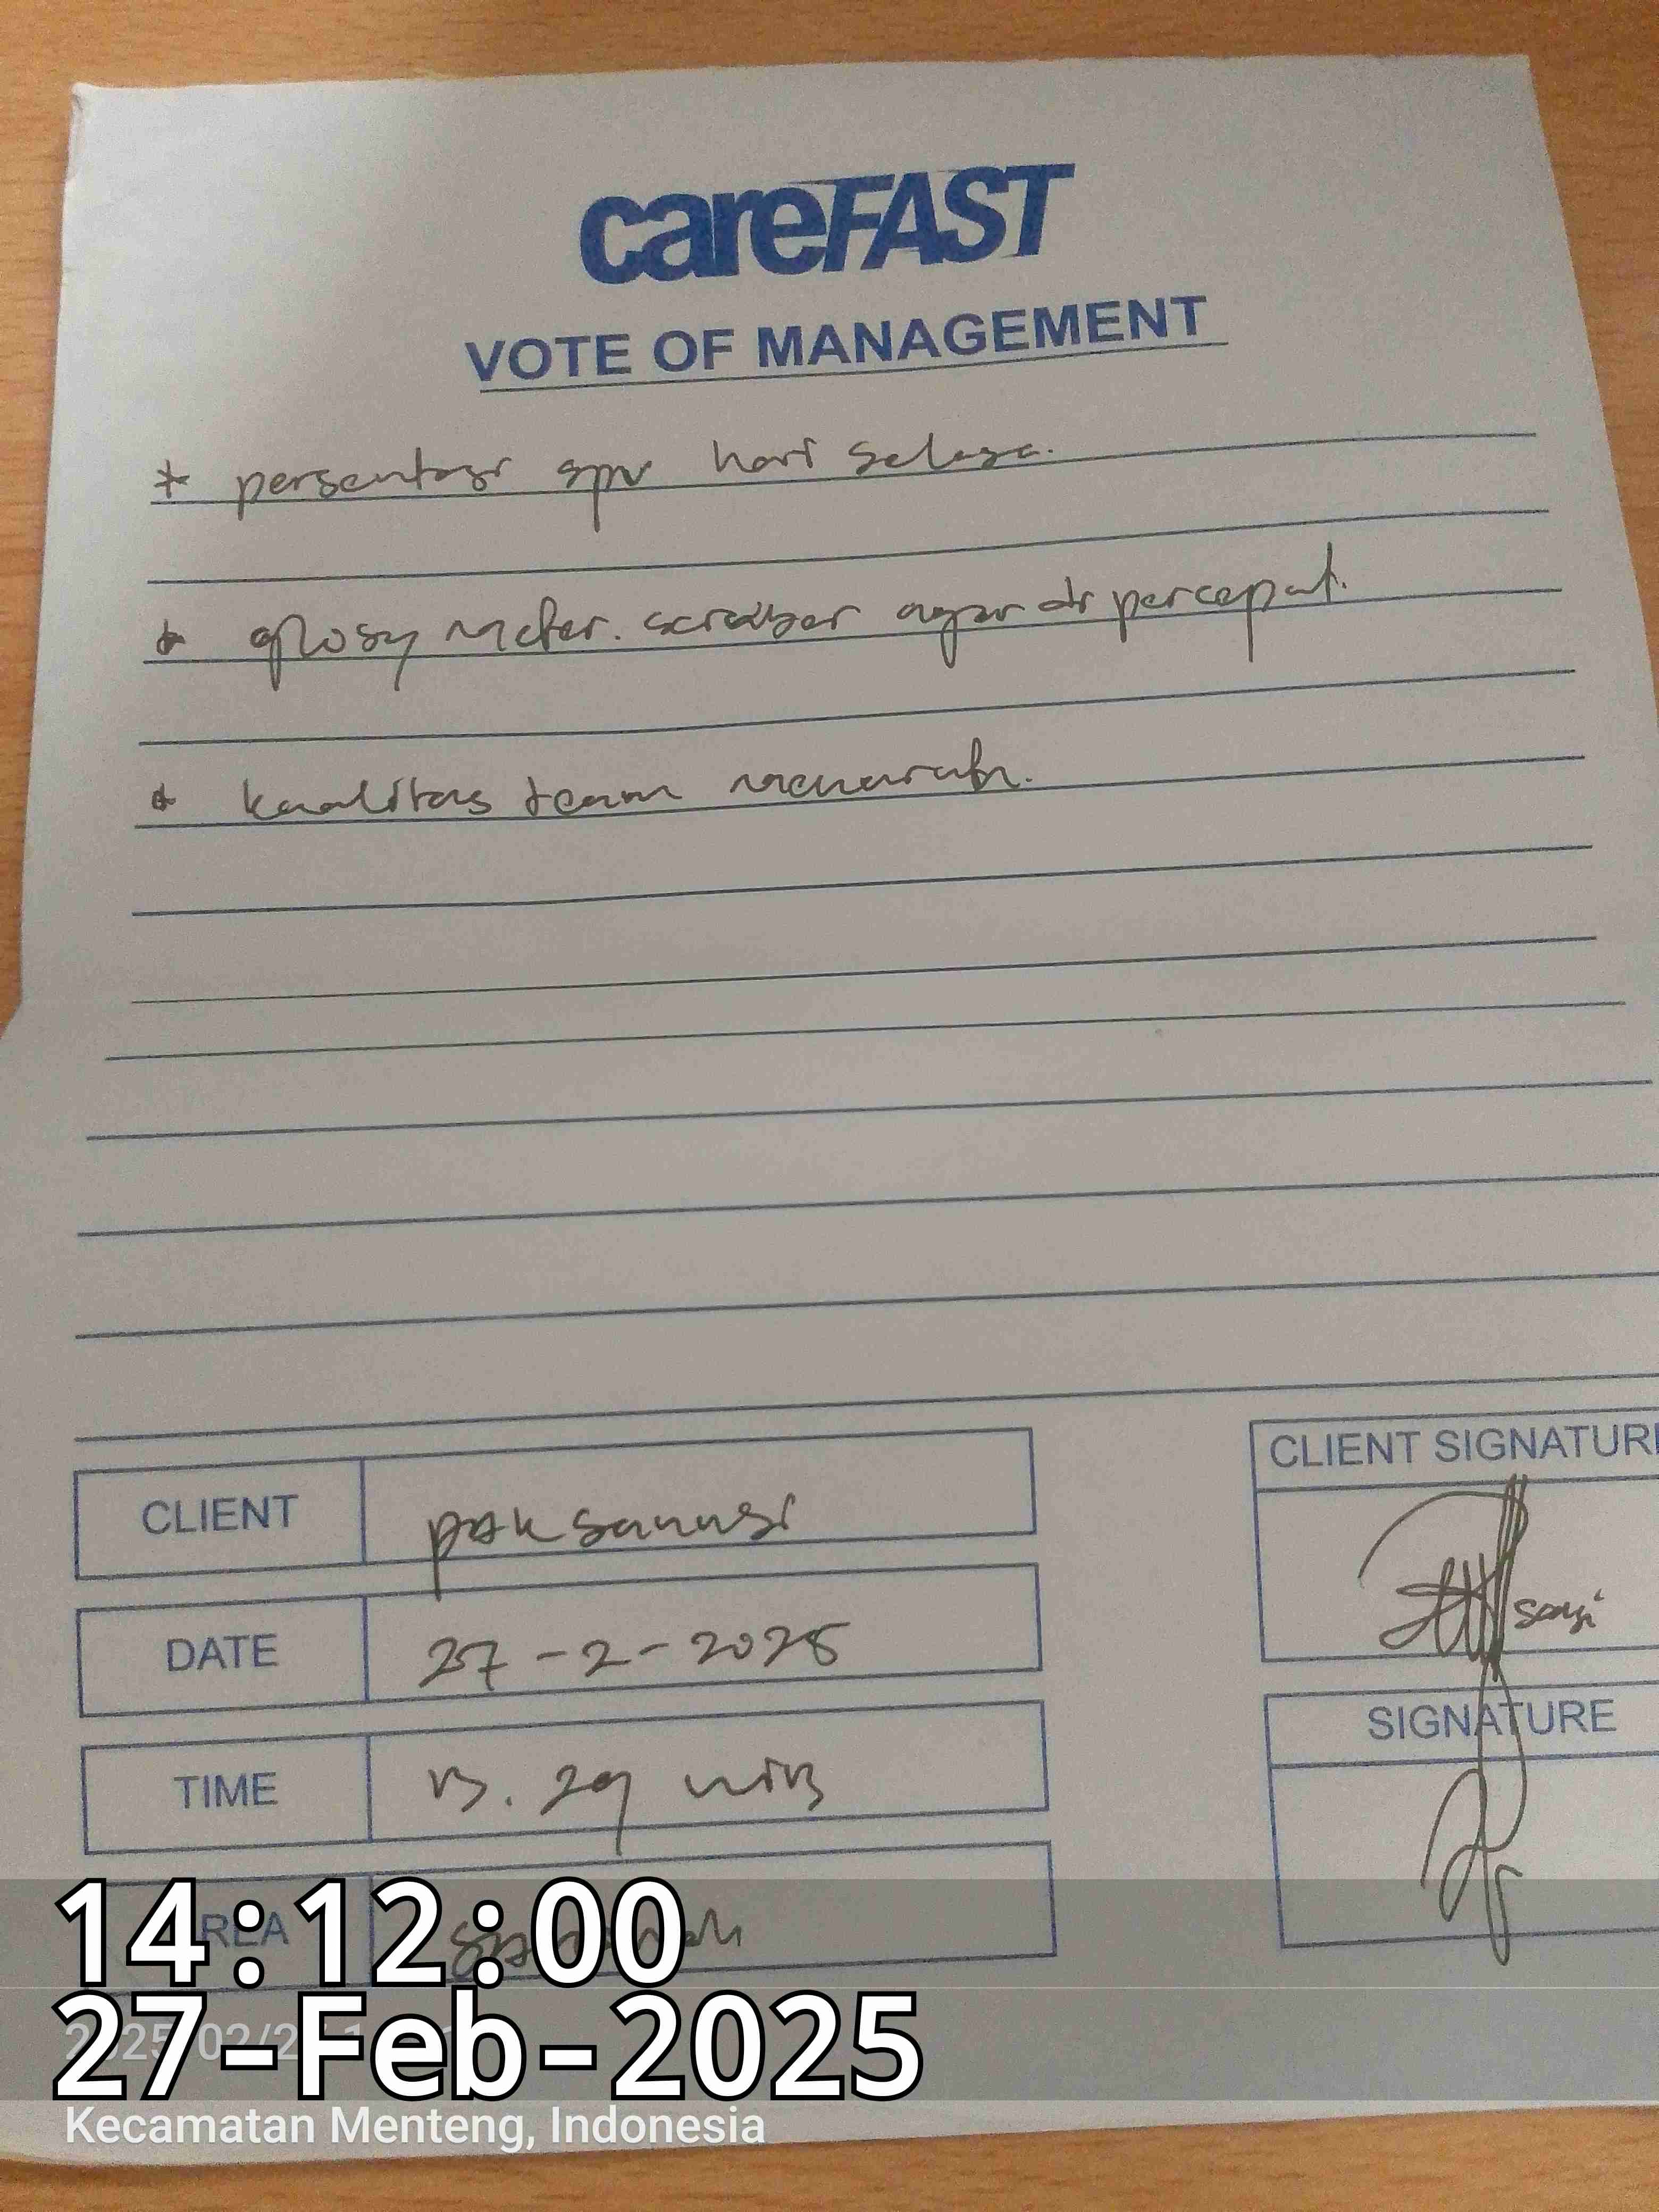 careFAST
VOTE OF MANAGEMENT
* persentasi spv hari selasa.
* glosy meter. scraber agar di percepat.
* kualitas team
CLIENT pak sanusi
DATE 27-2-2025
TIME 13.29 WIB
CLIENT SIGNATURE
SIGNATURE
14:12:00
27-Feb-2025
Kecamatan Menteng, Indonesia